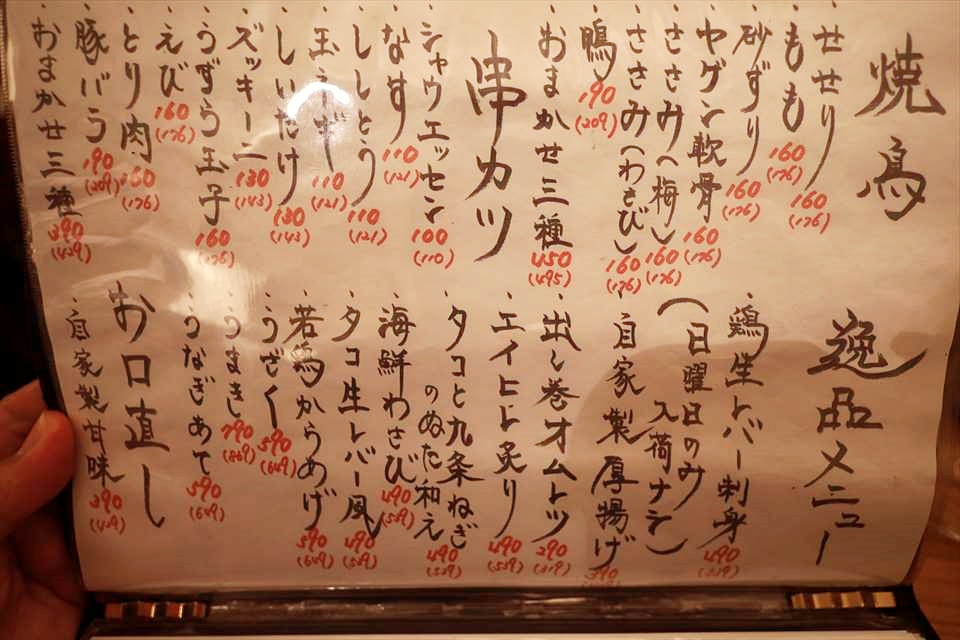 焼鳥
・せせり 160 (176)
・もも 160 (176)
・砂ずり 160 (176)
・ヤゲン軟骨 160 (176)
・ささみ(梅) 160 (176)
・ささみ(わさび) 160 (176)
・鴨 190 (209)
・おまかせ三種 450 (495)
串カツ
・シャウエッセン 100 (110)
・なす 110 (121)
・ししとう 110 (121)
・玉ネギ 110 (121)
・しいたけ 130 (143)
・ズッキーニ 130 (143)
・うずら玉子 160 (176)
・えび 160 (176)
・とり肉 160 (176)
・豚バラ 190 (209)
・おまかせ三種 390 (429)
逸品メニュー
・鶏生レバー刺身 490 (539)
(日曜日のみ
入荷ナシ)
・自家製厚揚げ 390
・出し巻オムレツ 290 (319)
・エイヒレ炙り 490 (539)
・タコと九条ねぎ
のぬた和え 490 (539)
・海鮮わさび 490 (539)
・タコ生レバー風 490 (539)
・若鳥からあげ 590 (649)
・うざく 590 (649)
・うまきし 790 (869)
・うなぎあて 590 (649)
お口直し
・自家製甘味 390 (429)